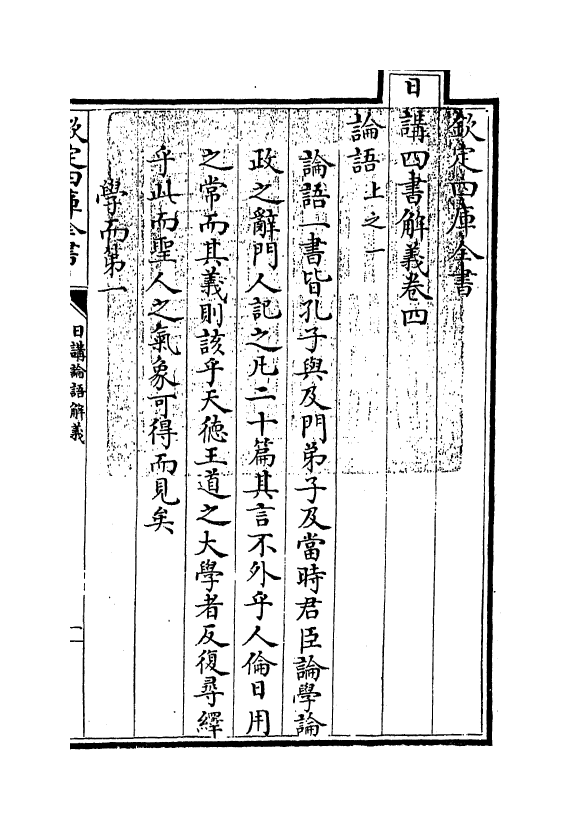 欽定四庫全書
日講四書解義卷四
論語上之一
論語一書皆孔子與及門弟子及當時君臣論學論
政之辭門人記之凡二十篇其言不外乎人倫日用
之常而其義則該乎天徳王道之大學者反復尋繹
乎此而聖人之氣象可得而見矣
學而第一
欽定四庫全書
日講論語解義
一